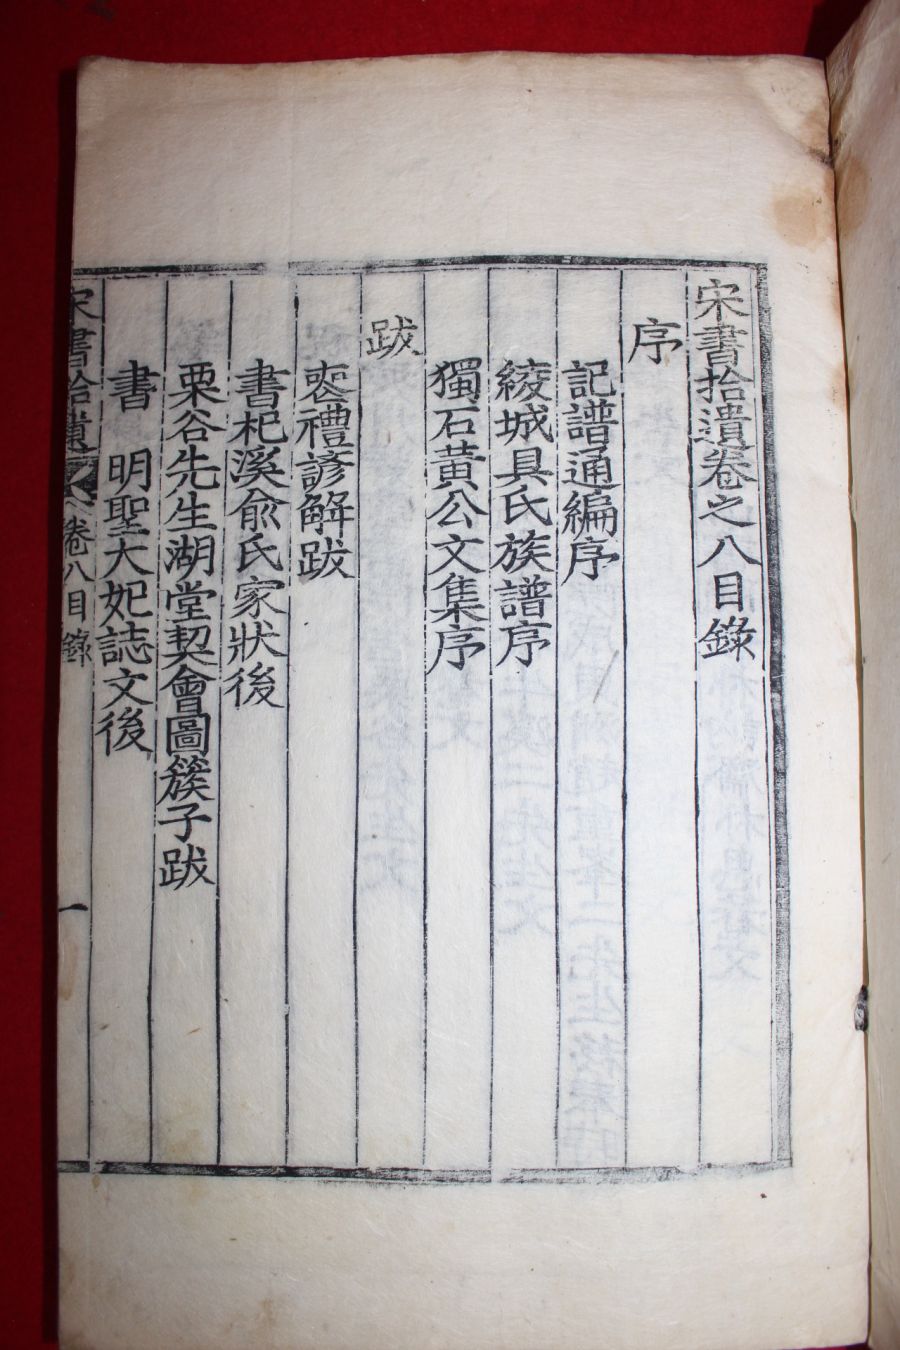 宋書拾遺卷之八目錄
序
記譜通編序
綾城具氏族譜序
獨石黃公文集序
跋
喪禮諺解跋
書杞溪兪氏家狀後
栗谷先生湖堂契會圖簇子跋
書　明聖大妃誌文後
宋書拾遺　卷八目錄　一